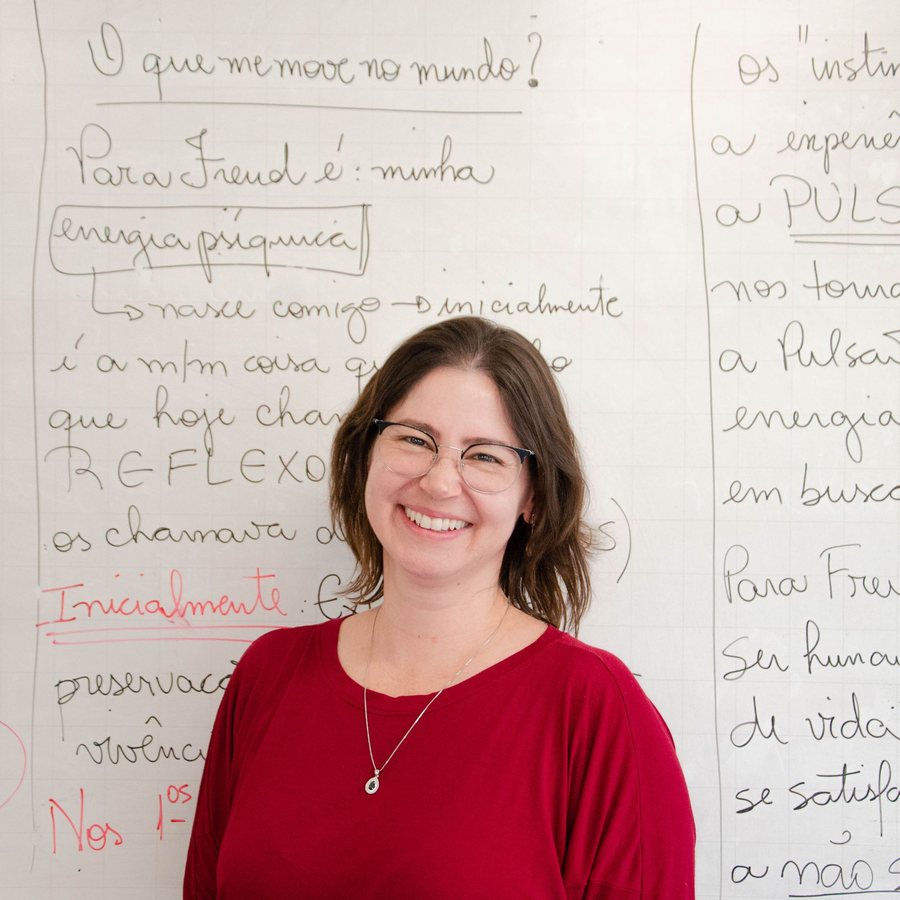 O que me move no mundo?
Para Freud é: minha
energia psíquica
↳ nasce comigo → inicialmente
é a m/m coisa
que hoje
REFLEXO
os chamava
Inicialmente:
Nos 1os
os "instin
a experiê
a PULS
nos torna
a Pulsã
energia
em busca
Para Freu
Ser huma
de vida
se satisfa
a não